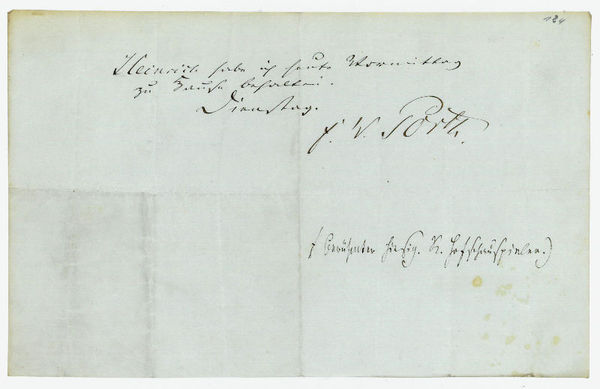 184
Heinrich habe ich heute Vormittag
zu Hause behalten.
Dienstag.
F. W. Porth.
(berühmter hiesig. K. Hofschauspieler.)